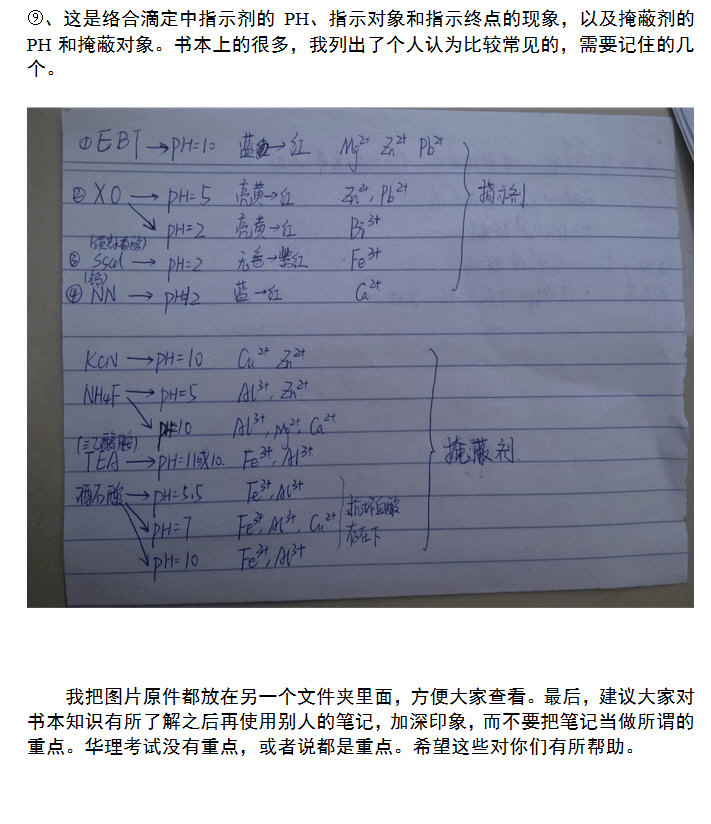 ⑨、这是络合滴定中指示剂的 PH、指示对象和指示终点的现象，以及掩蔽剂的
PH 和掩蔽对象。书本上的很多，我列出了个人认为比较常见的，需要记住的几
个。
①EBT→PH=10 蓝→红 Mg²⁺ Zn²⁺ Pb²⁺
②XO→pH=5 亮黄→红 Zn²⁺, Pb²⁺
指示剂
pH=2 亮黄→红 Bi³⁺
(磺基水杨酸)
③ Ssal→pH=2 无色→紫红 Fe³⁺
(钙)
④ NN→pH12 蓝→红 Ca²⁺
KCN→pH=10 Cu²⁺ Zn²⁺
NH₄F→pH=5 Al³⁺, Zn²⁺
pH=10 Al³⁺, Mg²⁺, Ca²⁺
(三乙醇胺)
TEA→pH=11或10. Fe³⁺, Al³⁺
掩蔽剂
酒石酸→pH=5.5 Fe³⁺, Al³⁺
抗坏血酸
pH=7 Fe³⁺, Al³⁺, Cu²⁺
存在下
pH=10 Fe³⁺, Al³⁺
我把图片原件都放在另一个文件夹里面，方便大家查看。最后，建议大家对
书本知识有所了解之后再使用别人的笔记，加深印象，而不要把笔记当做所谓的
重点。华理考试没有重点，或者说都是重点。希望这些对你们有所帮助。